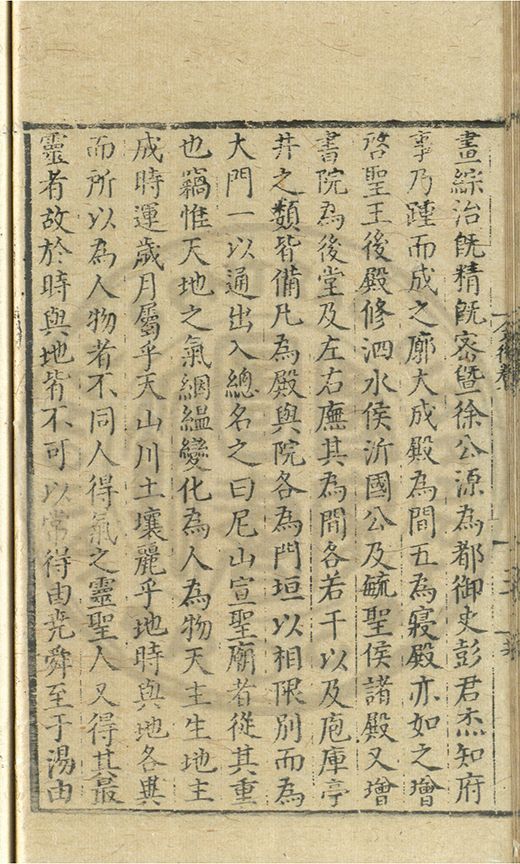 畫綜治旣精旣密曁徐公源為都御史彭君杰知府
事乃踵而成之廓大成殿為間五為寢殿亦如之增
啓聖王後殿修泗水侯沂國公及毓聖侯諸殿又增
書院為後堂及左右廡其為間各若干以及庖庫亭
井之類皆備凡為殿與院各為門垣以相限別而為
大門一以通出入總名之曰尼山宣聖廟者從其重
也竊惟天地之氣絪縕變化為人為物天主生地主
成時運歲月屬乎天山川土壤麗乎地時與地各異
而所以為人物者不同人得氣之靈聖人又得其最
靈者故於時與地皆不可以常得由堯舜至于湯由